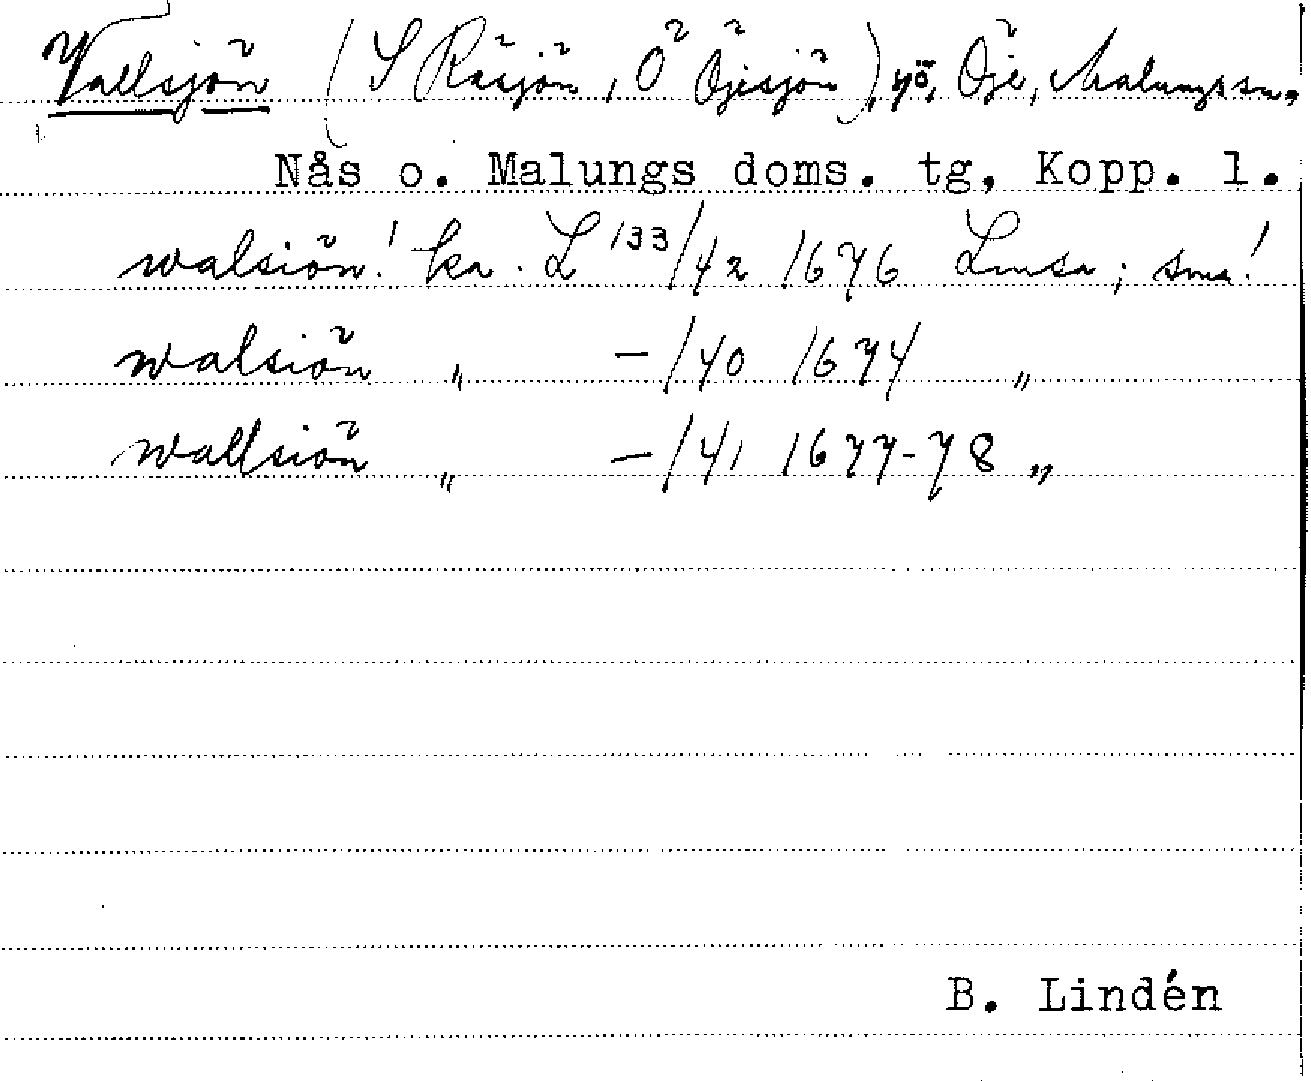 Vallsjön (S Råsjön, Ö Öjesjön), sjö, Öje, Malungs sn.
Nås o. Malungs doms. tg, Kopp. l.
walsiön! ka. L 133/42 1676 Limsa; sma!
walsiön " -/40 1674 "
wallsiön " -/41 1677-78 "
B. Lindén